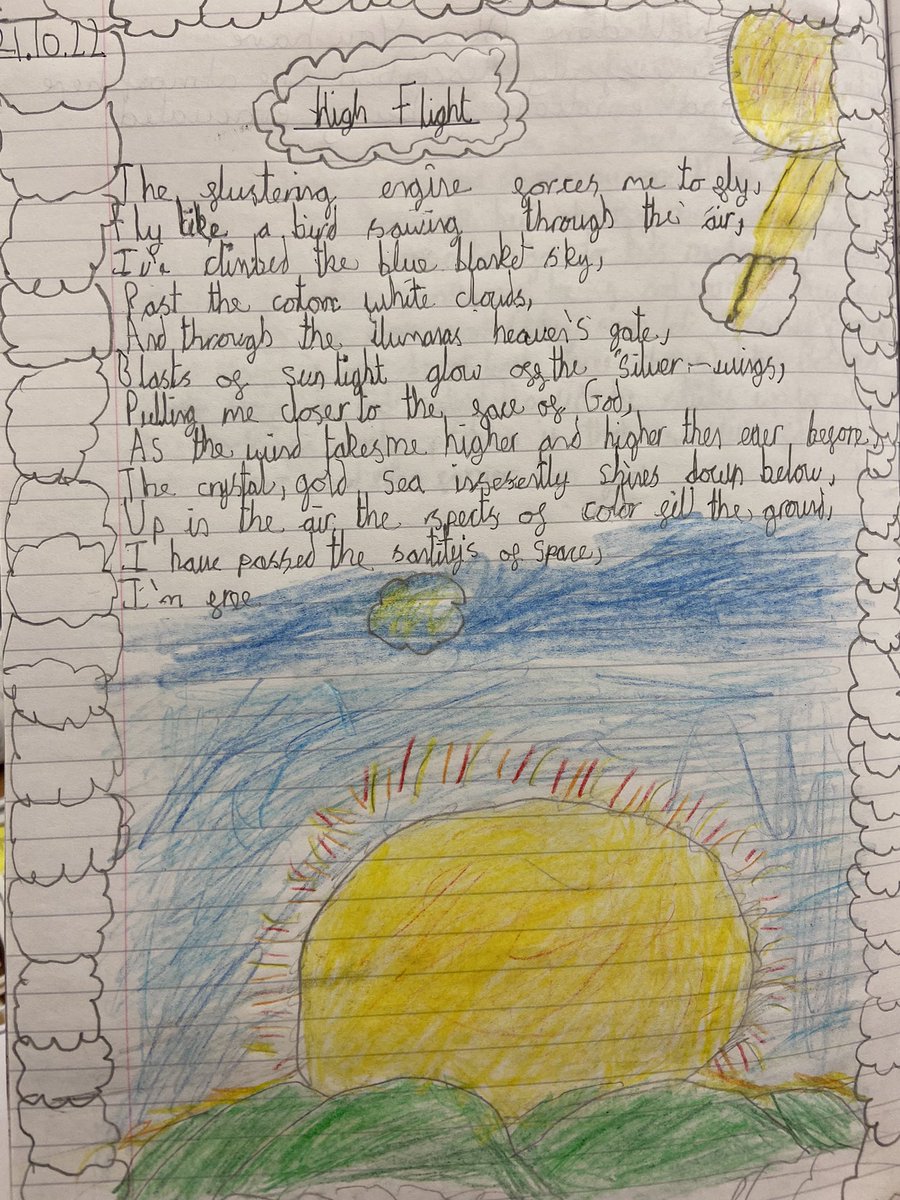 21.10.22
High Flight
The glustering engine forces me to fly,
Fly like a bird sowing through the air,
I've climbed the blue blanket sky,
Past the coton white clouds,
And through the illumanas heaven's gate,
Blasts of sun light glow off the silver-wings,
Pulling me closer to the face of God,
As the wind takes me higher and higher then ever before,
The crystal, gold sea insesently shines down below,
Up in the air, the spects of color fill the ground,
I have passed the santity's of space,
I'm free